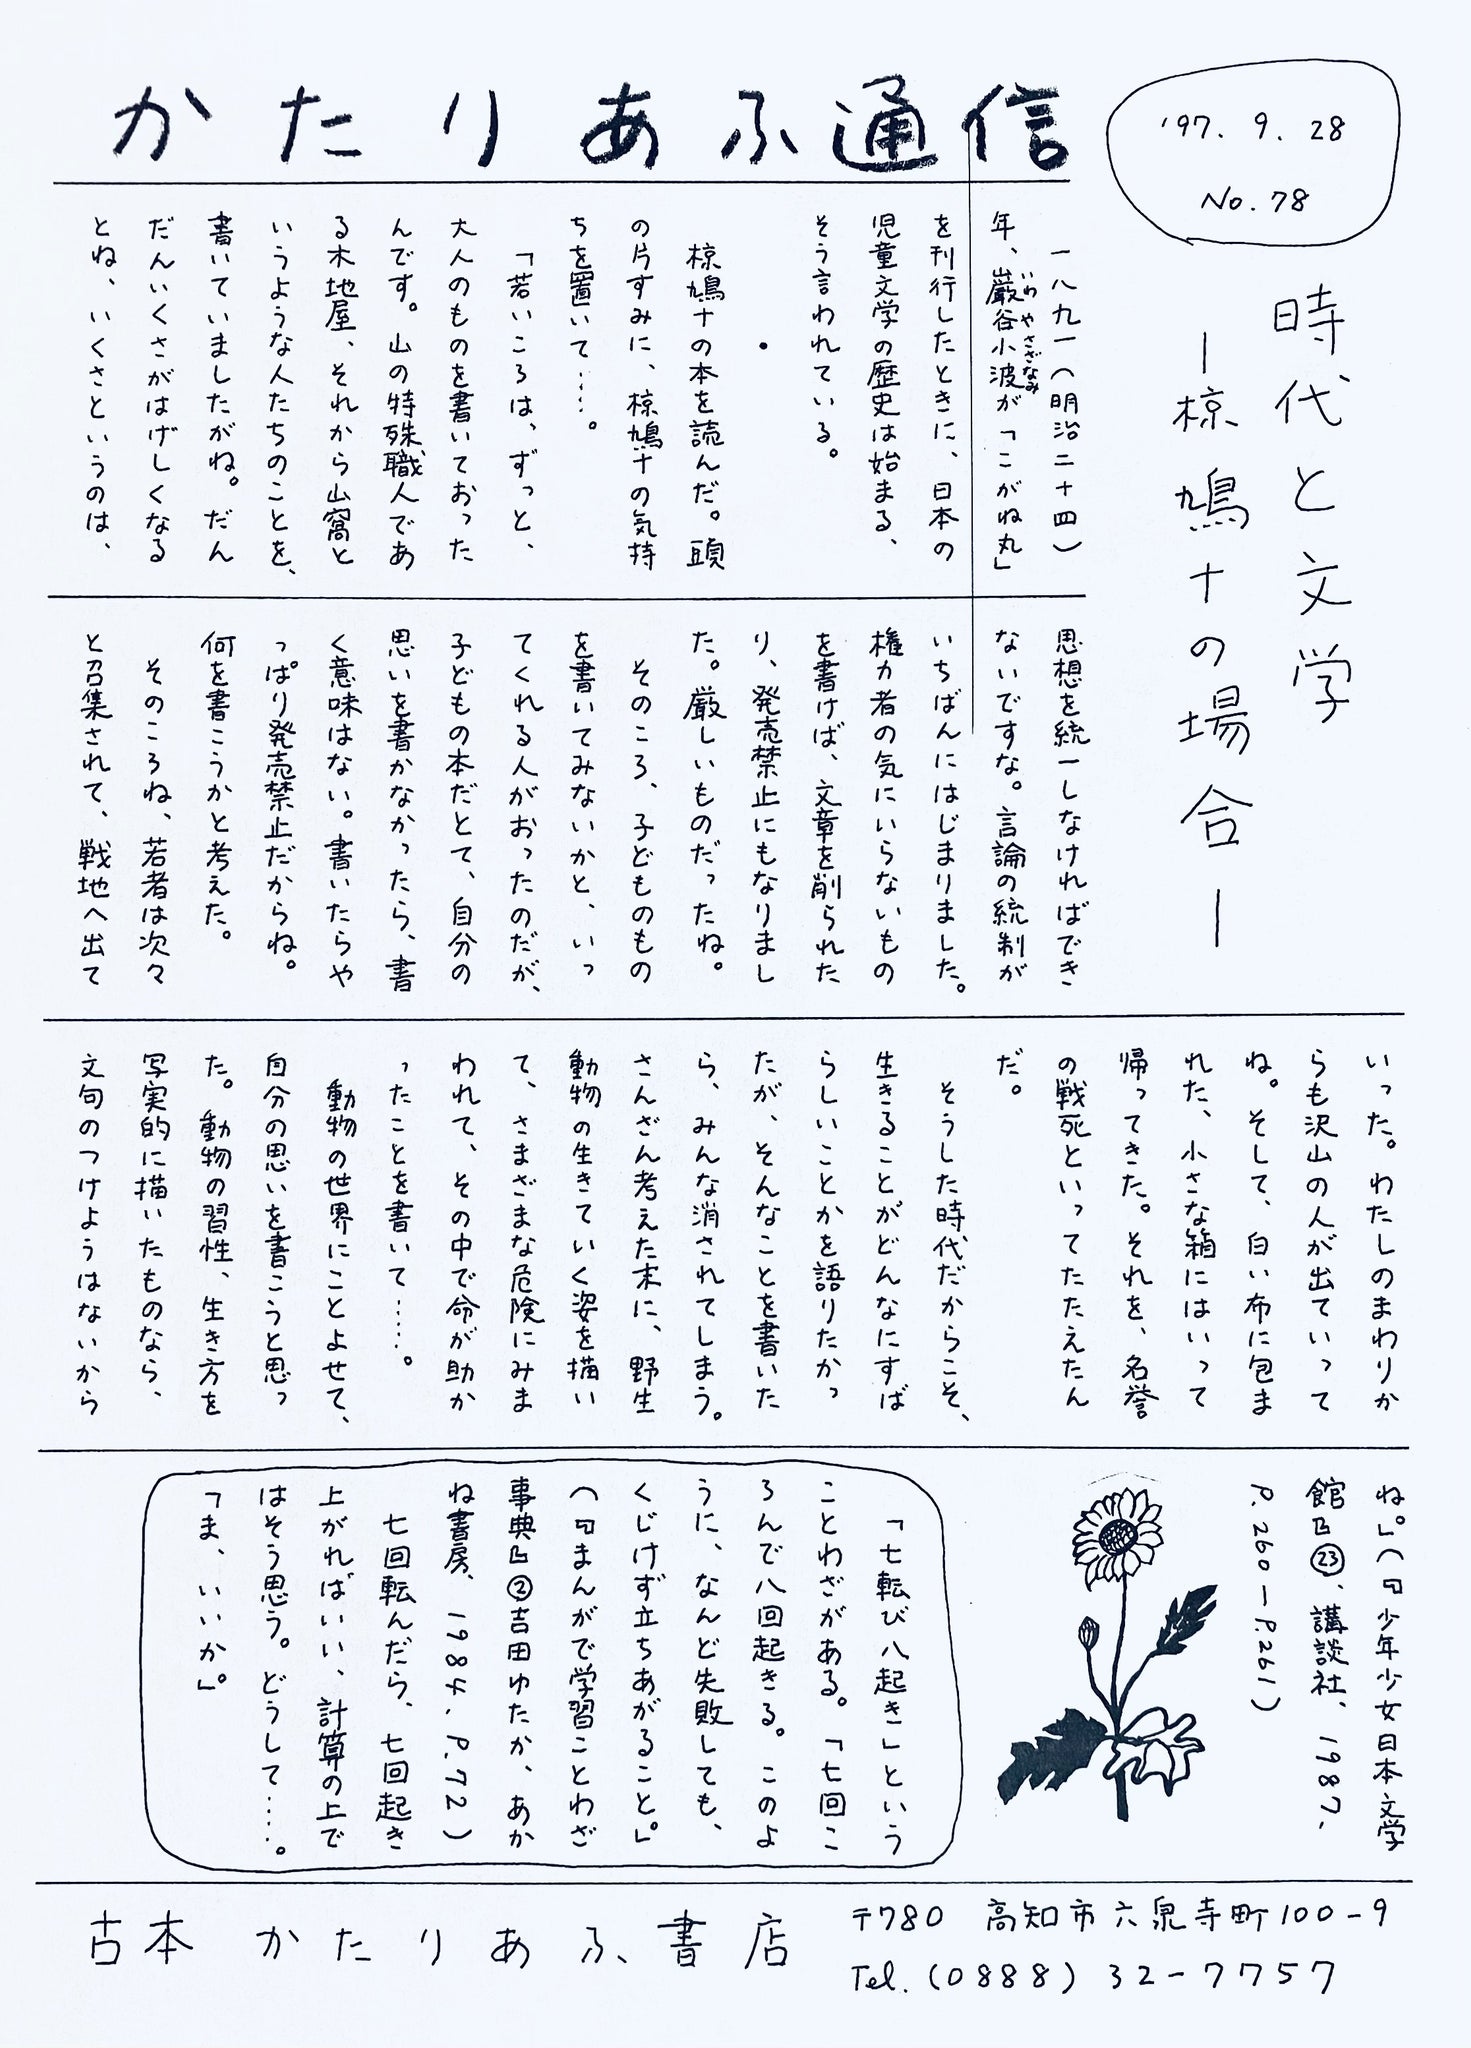 かたりあふ通信
'97. 9. 28
No. 78
時代と文学
―椋鳩十の場合―
一八九一(明治二十四)
年、巌谷小波が「こがね丸」
いわやさざなみ
を刊行したときに、日本の
児童文学の歴史は始まる、
そう言われている。
・
椋鳩十の本を読んだ。頭
の片すみに、椋鳩十の気持
ちを置いて……。
「若いころは、ずっと、
大人のものを書いておった
んです。山の特殊職人であ
る木地屋、それから山窩と
いうような人たちのことを、
書いていましたがね。だん
だんいくさがはげしくなる
とね、いくさというのは、
思想を統一しなければでき
ないですな。言論の統制が
いちばんにはじまりました。
権力者の気にいらないもの
を書けば、文章を削られた
り、発売禁止にもなりまし
た。厳しいものだったね。
そのころ、子どものもの
を書いてみないかと、いっ
てくれる人がおったのだが、
子どもの本だとて、自分の
思いを書かなかったら、書
く意味はない。書いたらや
っぱり発売禁止だからね。
何を書こうかと考えた。
そのころね、若者は次々
と召集されて、戦地へ出て
いった。わたしのまわりか
らも沢山の人が出ていって
ね。そして、白い布に包ま
れた、小さな箱にはいって
帰ってきた。それを、名誉
の戦死といってたたえたん
だ。
そうした時代だからこそ、
生きることがどんなにすば
らしいことかを語りたかっ
たが、そんなことを書いた
ら、みんな消されてしまう。
さんざん考えた末に、野生
動物の生きていく姿を描い
て、さまざまな危険にみま
われて、その中で命が助か
ったことを書いて……。
動物の世界にことよせて、
自分の思いを書こうと思っ
た。動物の習性、生き方を
写実的に描いたものなら、
文句のつけようはないから
ね。」(『少年少女日本文学
館』㉓、講談社、1987、
P.260―P.261)
「七転び八起き」という
ことわざがある。「七回こ
ろんで八回起きる。このよ
うに、なんど失敗しても、
くじけず立ちあがること。」
(『まんがで学習ことわざ
事典』②吉田ゆたか、あか
ね書房、1984、P.72)
七回転んだら、七回起き
上がればいい、計算の上で
はそう思う。どうして……。
「ま、いいか。」
古本 かたりあふ書店
〒780 高知市六泉寺町100-9
Tel. (0888) 32-7757